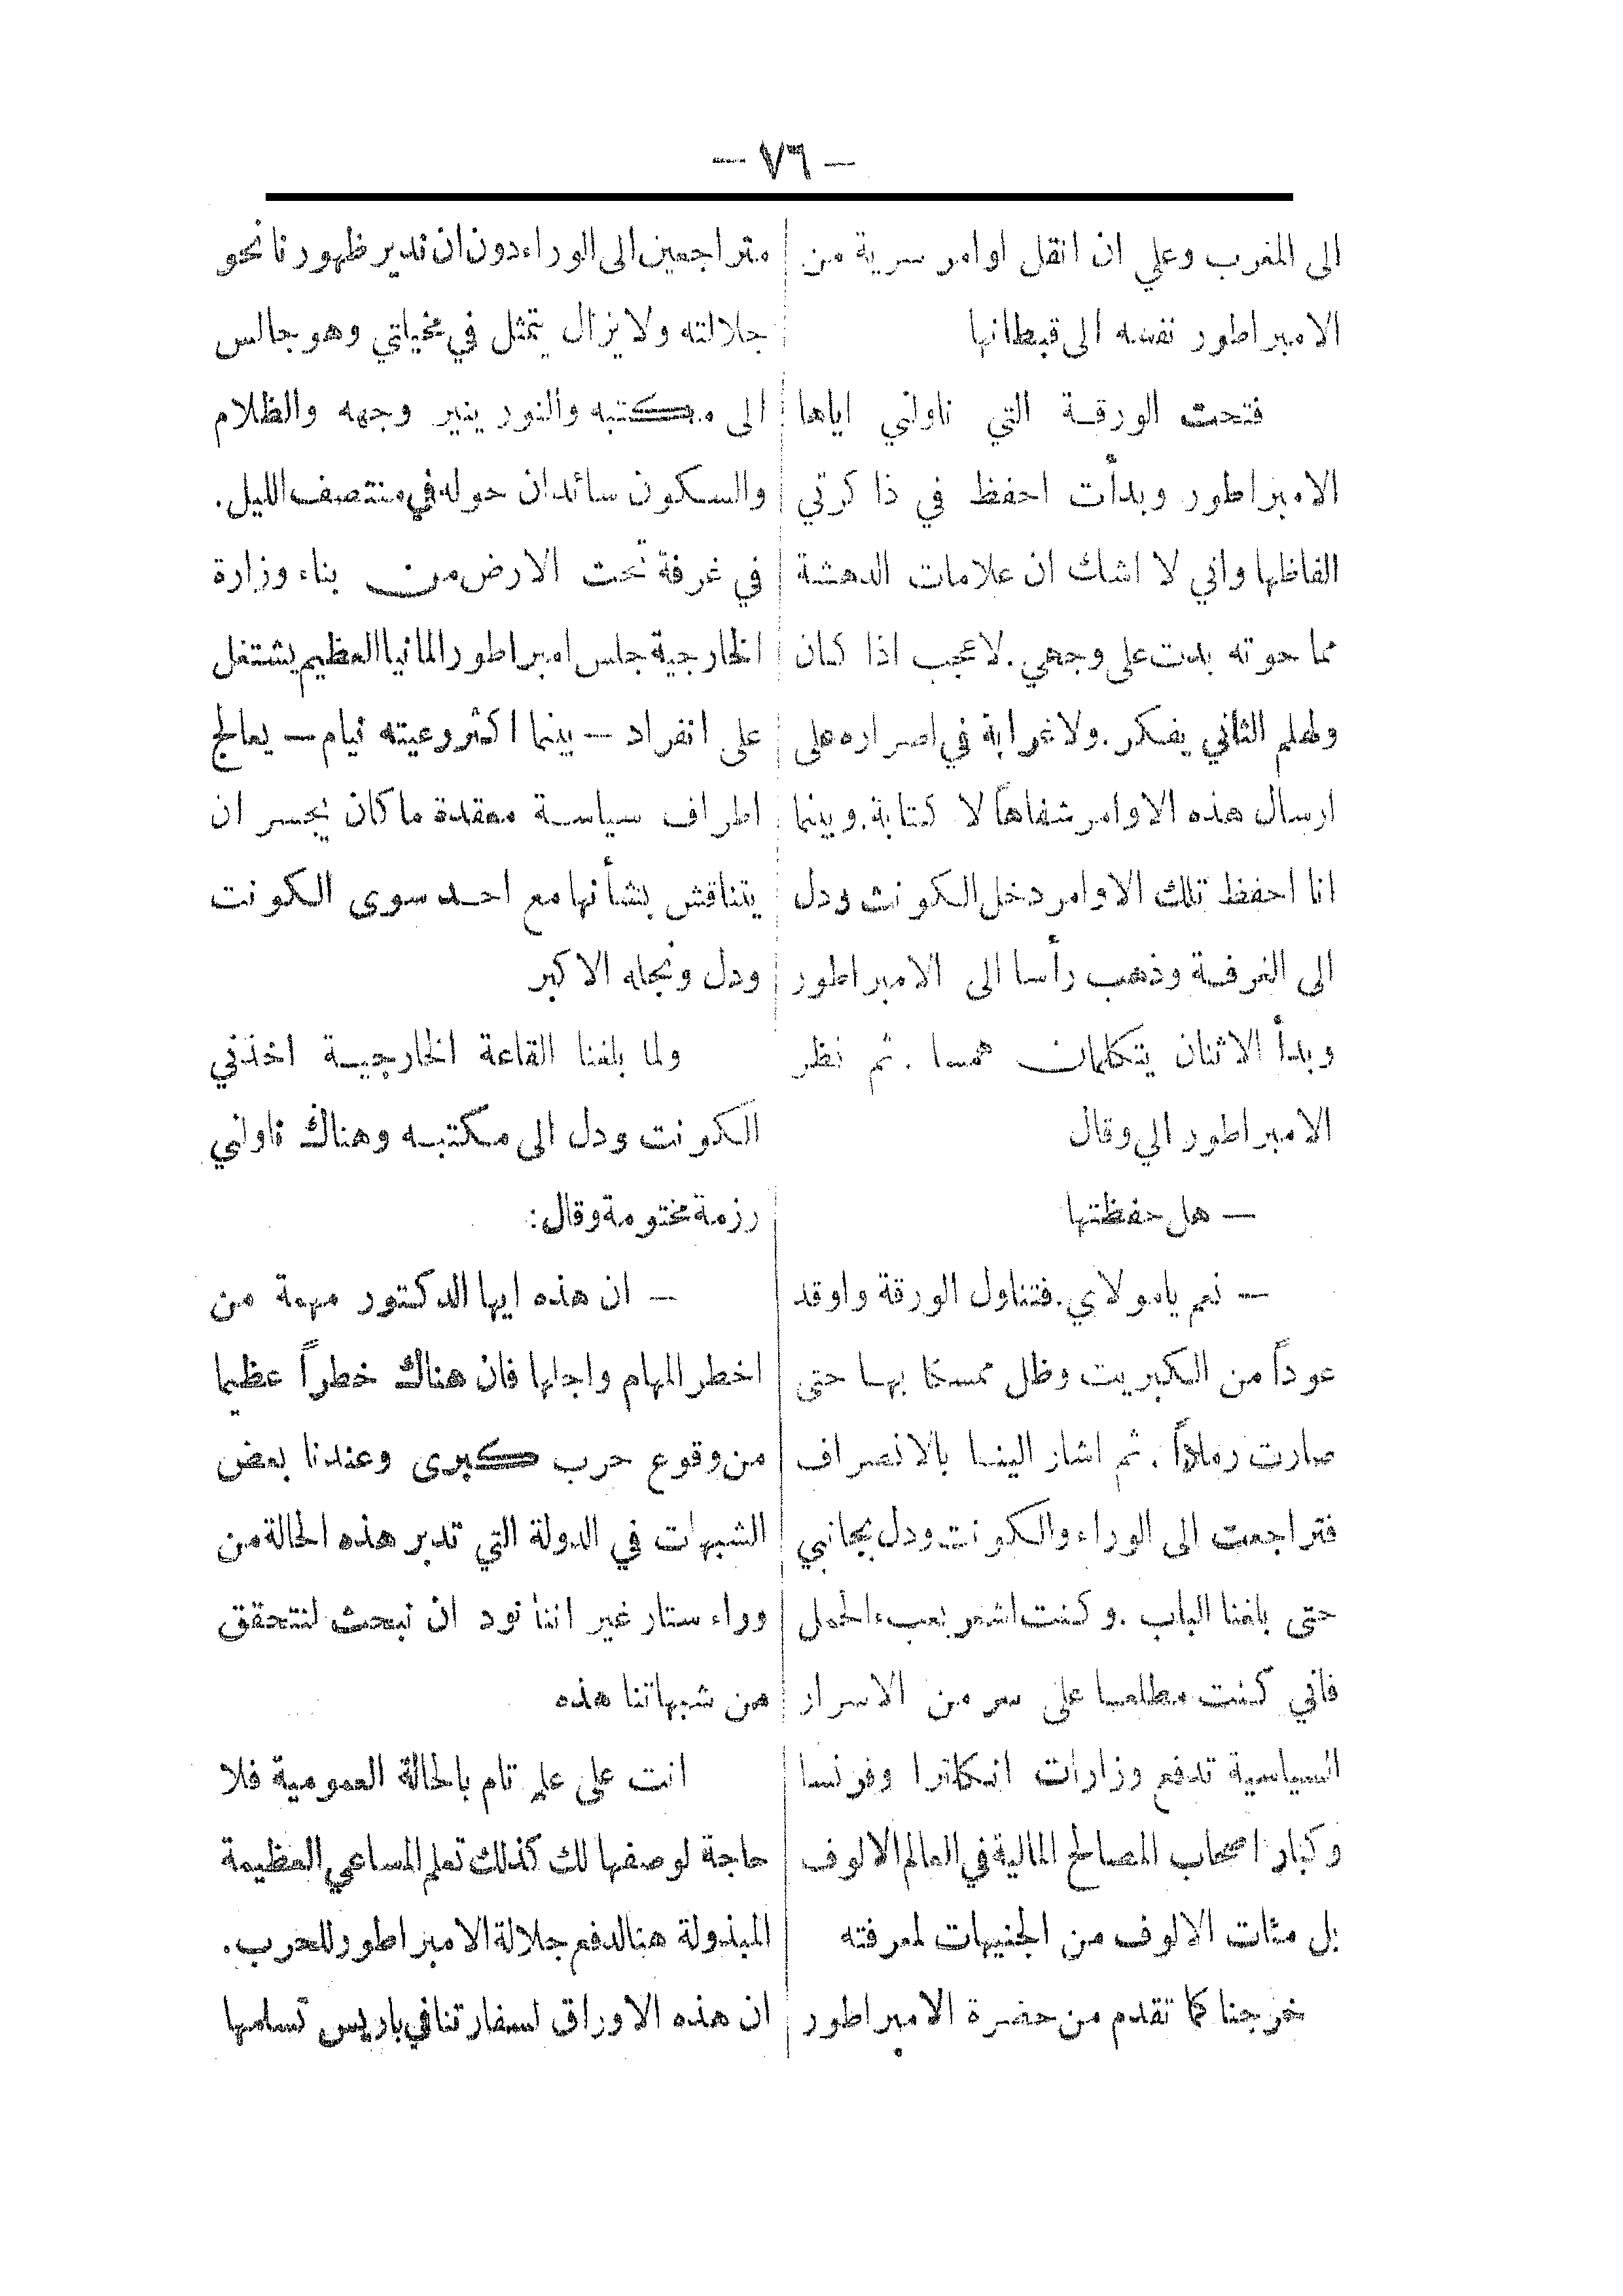 — ٧٦ —
الى المغرب وعلي ان انقل اوامر سرية من
الامبراطور نفسه الى قبطانها
فتحت الورقة التي ناولني اياها
الامبراطور وبدأت احفظ في ذاكرتي
الفاظها واني لا اشك ان علامات الدهشة
مما حوته بدت على وجهي. لاعجب اذا كان
ولهلم الثاني يفكر. ولا غرابة في اصراره على
ارسال هذه الاوامر شفاهاً لا كتابة. وبينما
انا احفظ تلك الاوامر دخل الكونت ودل
الى الغرفة وذهب رأسا الى الامبراطور
وبدأ الاثنان يتكلمان همسا. ثم نظر
الامبراطور الي وقال
— هل حفظتها
— نعم يامولاي. فتناول الورقة واوقد
عوداً من الكبريت وظل ممسكا بها حتى
صارت رماداً. ثم اشار الينا بالانصراف
فتراجعت الى الوراء والكونت ودل بجانبي
حتى بلغنا الباب. وكنت اشعر بعبء الحمل
فاني كنت مطلعا على سر من الاسرار
السياسية تدفع وزارات انكلترا وفرنسا
وكبار اصحاب المصالح المالية في العالم الالوف
بل مئات الالوف من الجنيهات لمعرفته
خرجنا كما تقدم من حضرة الامبراطور
متراجعين الى الوراء دون ان ندير ظهورنا نحو
جلالته ولا يزال يتمثل في مخيلتي وهو جالس
الى مكتبه والنور ينير وجهه والظلام
والسكون سائدان حوله في منتصف الليل.
في غرفة تحت الارض من بناء وزارة
الخارجية جلس امبراطور المانيا العظيم يشتغل
على انفراد — بينما اكثر وعيته نيام — يعالج
اطراف سياسة معقدة ماكان يجسر ان
يتناقش بشأنها مع احد سوى الكونت
ودل ونجله الاكبر
ولما بلغنا القاعة الخارجية اخذني
الكونت ودل الى مكتبه وهناك ناولني
رزمة مختومة وقال:
— ان هذه ايها الدكتور مهمة من
اخطر المهام واجلها فان هناك خطراً عظيما
من وقوع حرب كبرى وعندنا بعض
الشبهات في الدولة التي تدبر هذه الحالة من
وراء ستار غير اننا نود ان نبحث لنتحقق
من شبهاتنا هذه
انت على علم تام بالحالة العمومية فلا
حاجة لوصفها لك كذلك تعلم المساعي العظيمة
المبذولة هنا لدفع جلالة الامبراطور للحرب.
ان هذه الاوراق لسفارتنا في باريس تسلمها